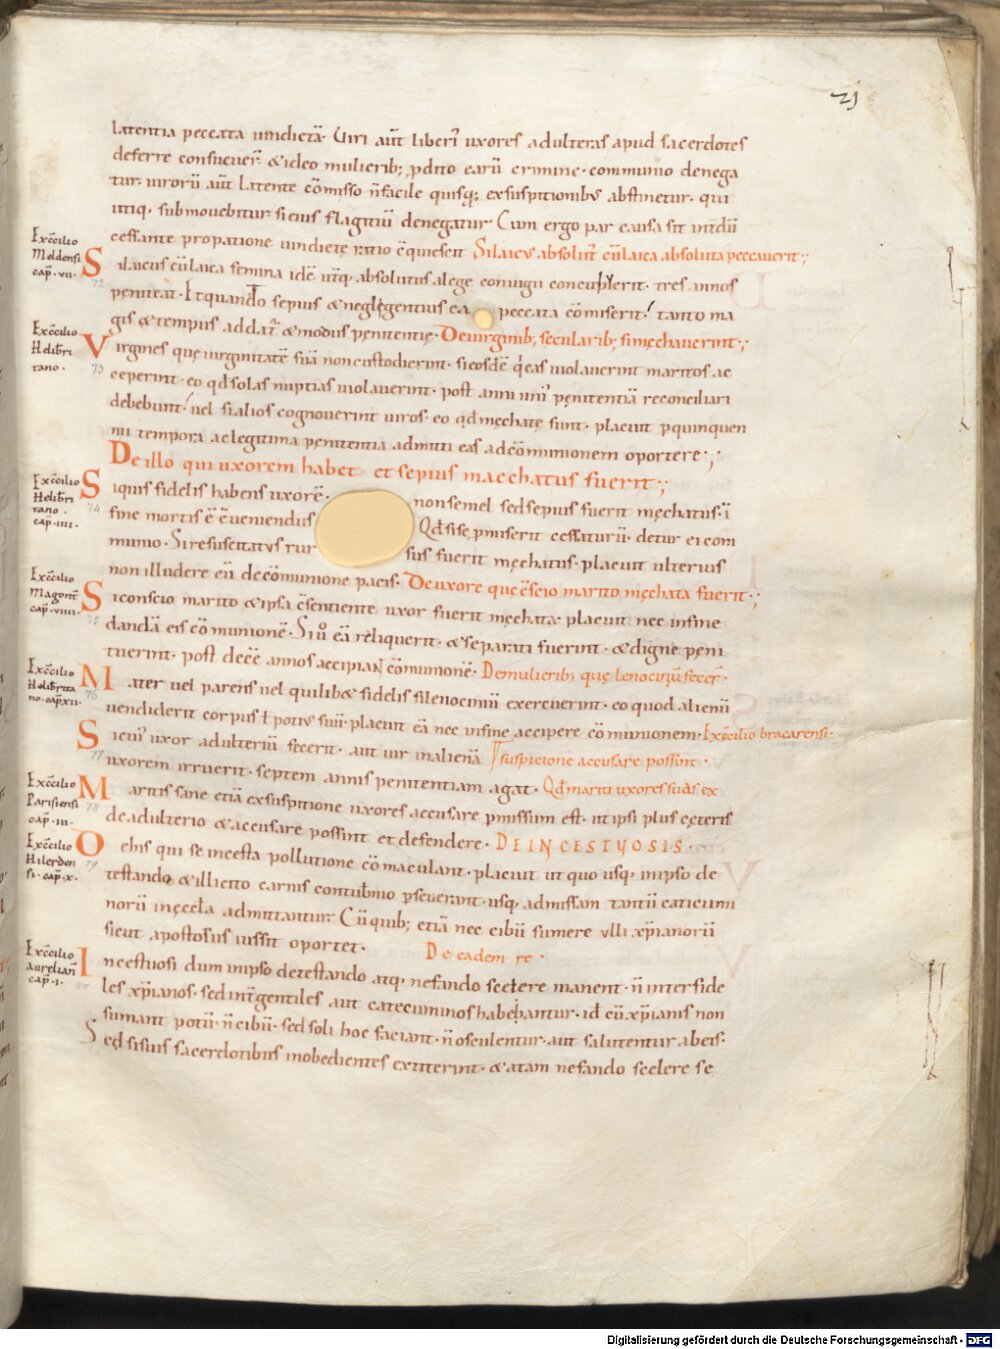 21
latentia peccata uindictā. Uiri aut̄ liberi᷑ uxores adulteras apud sacerdotes
deferre consueuer̄. & ideo mulierib; ꝓdito earū crimine. communio denega
tur. uirorū aut̄ latente cōmisso n̄ facile quisq; ex suspitionibus abstinetur. qui
utiq; submouebitur. si eius flagitiū denegatur. Cum ergo par causa sit int̄dū
cessante propatione uindictę ratio c̄quiescit. Si laicus absolut᷑ cū laica absoluta peccauerit.,
Ex c̄cilio
Meldensi
cap̄. vii.
72
Si laicus cū laica femina idē utq; absolutus a lege coniugii concupierit. tres annos
peniteat. Et quando sepius & neglegentius ea peccata cōmiserit. tanto ma
gis & tempus addat᷑ & modus penitentię. De uirginib; secularib; si męchauerint.,
Ex c̄cilio
Helib̄ri
tano.
73
Virgines quę uirginitatē suā non custodierint. si eosdē q̄ eas uiolauerint maritos ac
ceperint. eo qd̄ solas nuptias uiolauerint. post annū unū pęnitentiā reconciliari
debebunt. uel si alios cognouerint uiros. eo qd̄ męchatę sunt. placuit ꝑ quinquen
nii tempora ac legitima pęnitentia admitti eas ad cōmunionem oportere.,
De illo qui uxorem habet et sepius maechatus fuerit.,
Ex c̄cilio
Helib̄ri
tano.
cap̄. iiii.
74
Si quis fidelis habens uxorē. non semel sed sępius fuerit męchatus. ī
fine mortis ē c̄ueniendus Qd̄ si se ꝓmiserit cessaturū. detur ei com
munio. Si resuscitatus rur sus fuerit męchatus. placuit ulterius
non illudere eū de cōmunione pacis. De uxore que c̄scio marito męchata fuerit.,
Ex c̄cilio
Magont̄
cap̄. viiii.
75
Si conscio marito & ipsa c̄sentiente uxor fuerit męchata. placuit nec in fine
dandā eis cōmunionē. Si u᷑o eā reliquerit. & separati fuerint. & digne pęni
tuerint. post decē annos accipiant cōmunionē. De mulierib; quę lenociniū fecer̄.
Ex c̄cilio
Helib̄rita
no. cap̄ xii.
76
Mater uel parens uel quilib& fidelis si lenociniū exercuerint. eo quod alienū
uendiderit corpus ł potius suū. placuit eā nec in fine accipere cōmunionem. Ex c̄cilio bracarensi.
77
Si cui᷑ uxor adulteriū fecerit. aut uir in alienā suspicione accusare possint.
uxorem irruerit. septem annis penitentiam agat. Qd̄ mariti uxores suas ex
Ex c̄cilio
Parisiensi
cap̄. iii.
78
Maritis sane etiā ex suspitione uxores accusare ꝑmissum est. ut ipsi plus exteris
de adulterio & accusare possint et defendere. DE INCESTUOSIS.
Ex c̄cilio
Hilerden
si. cap̄. x.
79
De his qui se incesta pollutione cōmaculant. placuit ut quo usq; in ipso de
testando & illicito carnis contubnio ꝑseuerant. usq; admissam tantū caticumi
norū in ęcctā admittantur. Cū quib; etiā nec cibū sumere ulli xp̄ianorū
sicut apostolus iussit oportet. De eadem re.
Ex c̄cilio
aurelian̄
cap̄. i.
80
Incestuosi dum in ipso detestando atq; nefando scelere manent. n̄ inter fide
les xp̄ianos. sed int̄ gentiles aut catecuminos habebantur. id̄ cū xp̄ianis non
sumant potū. n̄ cibū. sed soli hoc faciant. n̄ osculentur. aut salutentur ab eis.
Sed si suis sacerdotibus inobedientes extiterint. & a tam nefando scelere se
Digitalisierung gefördert durch die Deutsche Forschungsgemeinschaft - DFG